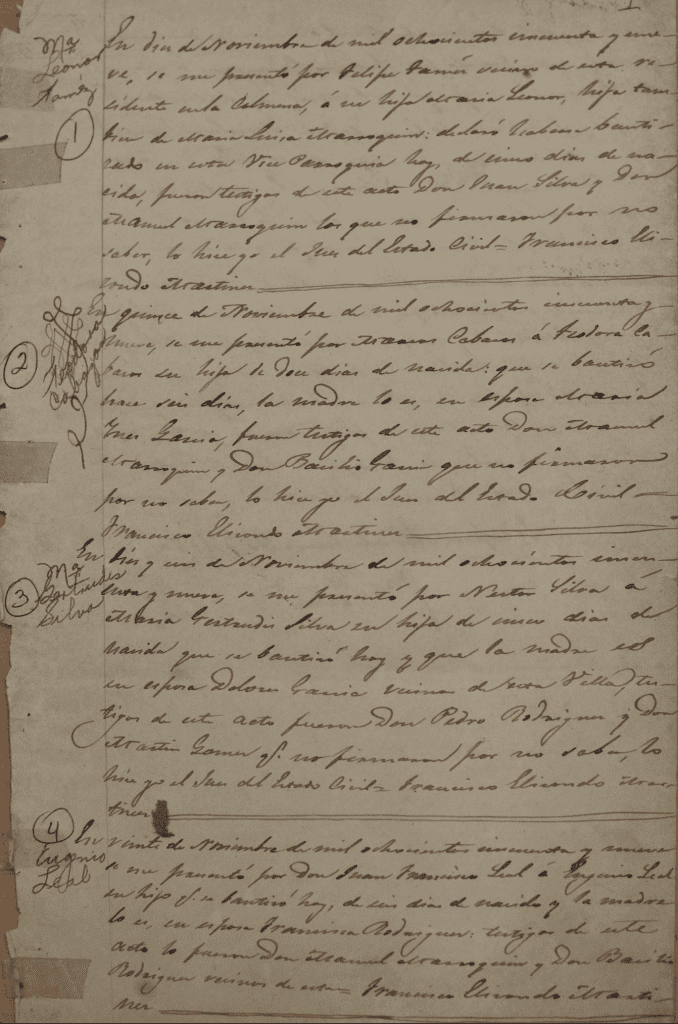 1
Mª
Leonor
Tamez
1
En dies de Noviembre de mil ochocientos cincuenta y nue-
ve, se me presentó por Felipe Tamés vecino de esta re-
sidente en la Colmena, á su hija Maria Leonor, hija tam-
bien de Maria Luisa Marroquin: declaró haberse bauti-
zado en esta Vice Parroquia hoy, de cinco dias de na-
cida, fueron testigos de este acto Don Juan Silva y Don
Manuel Marroquin los que no firmaron por no
saber, lo hice yo el Jues del Estado Civil = Francisco Eli-
zondo Martines
2
En quince de Noviembre de mil ochocientos cincuenta y
nueve, se me presentó por Marcos Cabasos á Teodora Ca-
basos su hija de doce dias de nacida: que se bautisó
hace seis dias, la madre lo es, su esposa Maria
Ines Garcia, fueron testigos de este acto Don Manuel
Marroquin y Don Bacilio que no firmaron
por no saber, lo hice yo el Jues del Estado Civil =
Francisco Elisondo Martines
3
Mª
Gertrudes
Silva
En dies y seis de Noviembre de mil ochocientos cincu-
enta y nueve, se me presentó por Nestor Silva á
Maria Gertrudis Silva su hija de cinco dias de
nacida que se bautisó hoy y que la madre es
su esposa Dolores Garcia vecina de esta Villa, tes-
tigos de este acto fueron Don Pedro Rodriguez y Don
Martin Gomes q. no firmaron por no saber, lo
hice yo el Jues del Estado Civil = Francisco Elisondo Mar-
tines
4
Eugenio
Leal
En veinte de Noviembre de mil ochocientos cincuenta y nueve
se me presentó por Don Juan Francisco Leal á Eugenio Leal
su hijo q. se bautisó hoy, de seis dias de nacido y la madre
lo es, su esposa Francisca Rodriguez: testigos de este
acto lo fueron Don Manuel Marroquin y Don Bacilio
Rodriguez vecinos de esta = Francisco Elisondo Marti-
nes